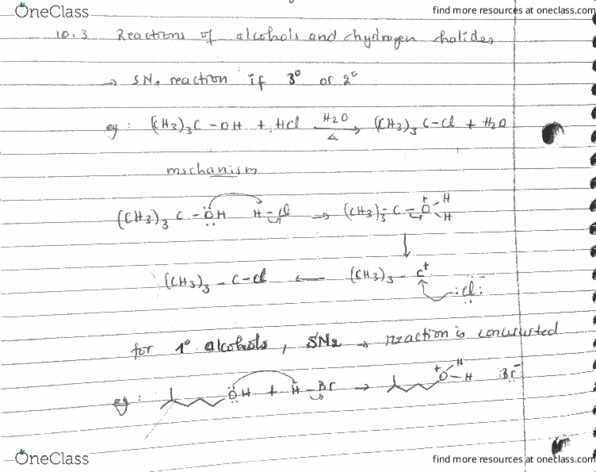 OneClass find more resources at oneclass.com
10.3 Reactions of alcohols and hydrogen halides
→ SN, reaction if 3° or 2°
eg: (CH3)3C-OH + HCl H2O → Δ (CH3)3C-Cl + H2O
mechanism
(CH3)3C-ÖH H-Cl → (CH3)3-C-O+ H H
(CH3)3-C-Cl ← (CH3)3-C+ :Cl:
for 1° alcohols, SN2 → reaction is concerted
eg: ÖH + H-Br → O+ H H Br-
OneClass find more resources at oneclass.com